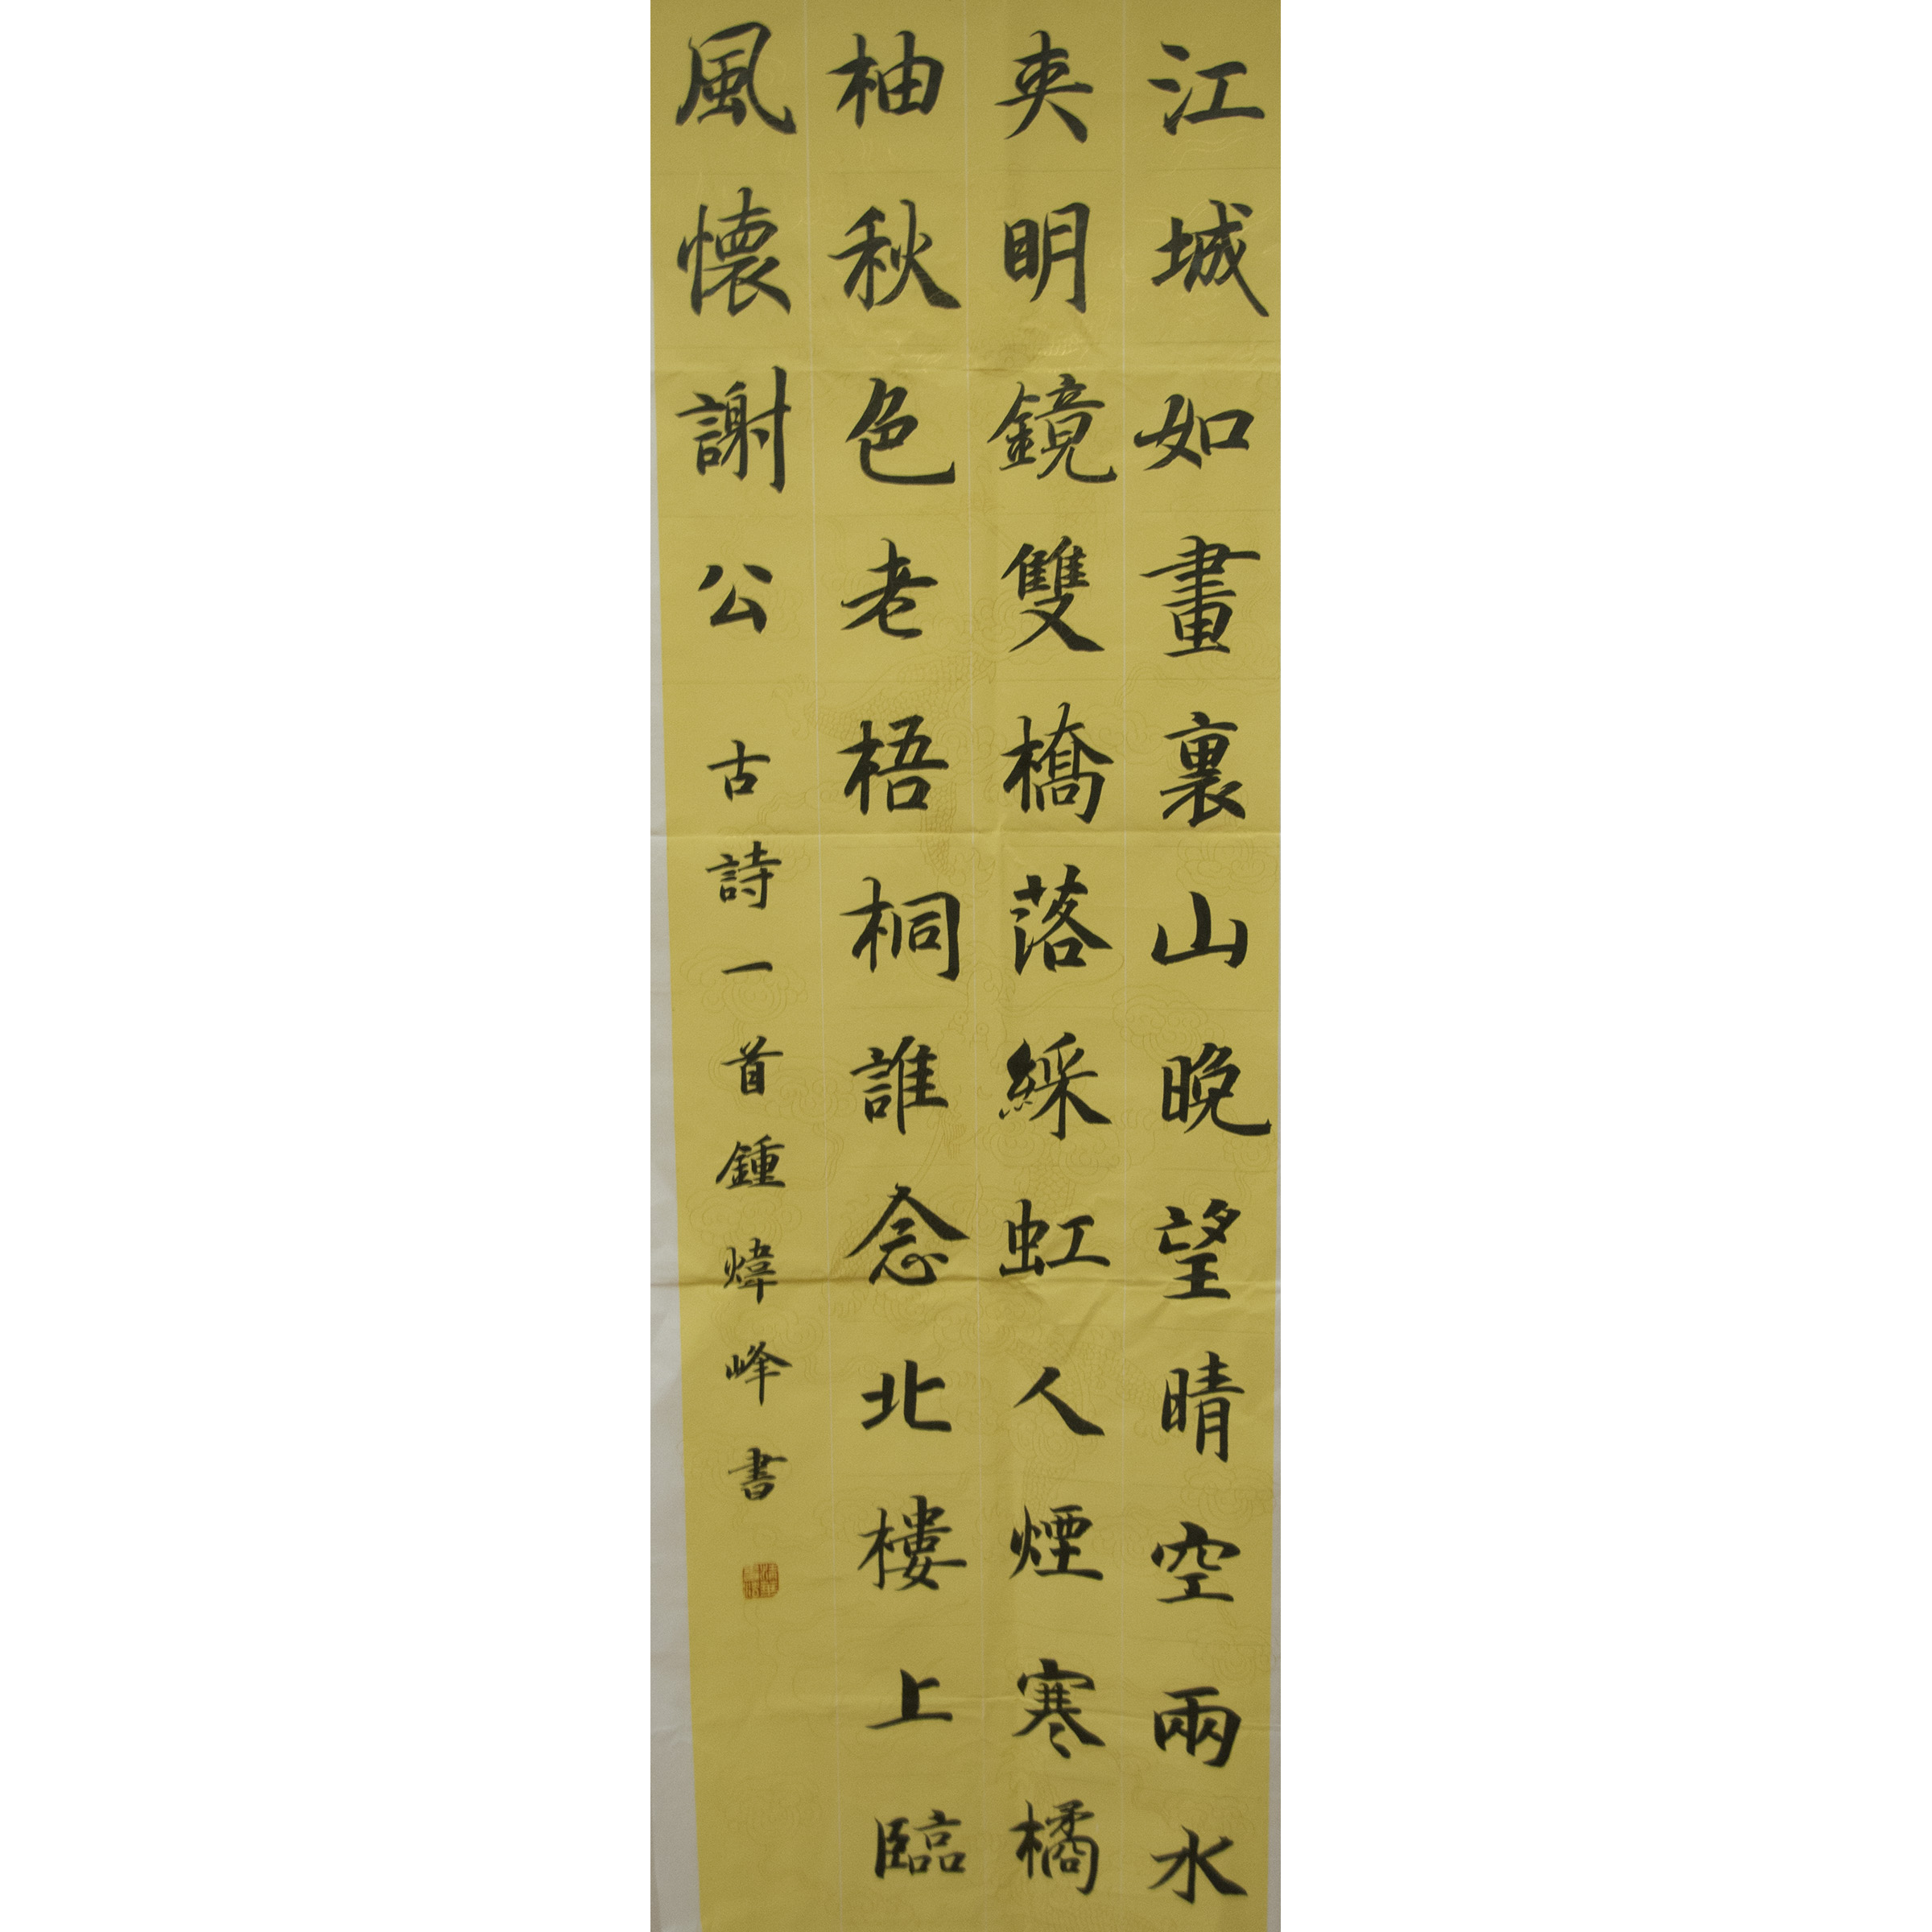 江城如畫裏山晚望晴空兩水
夾明鏡雙橋落綵虹人煙寒橘
柚秋色老梧桐誰念北樓上臨
風懷謝公 古詩一首鍾煒峰書